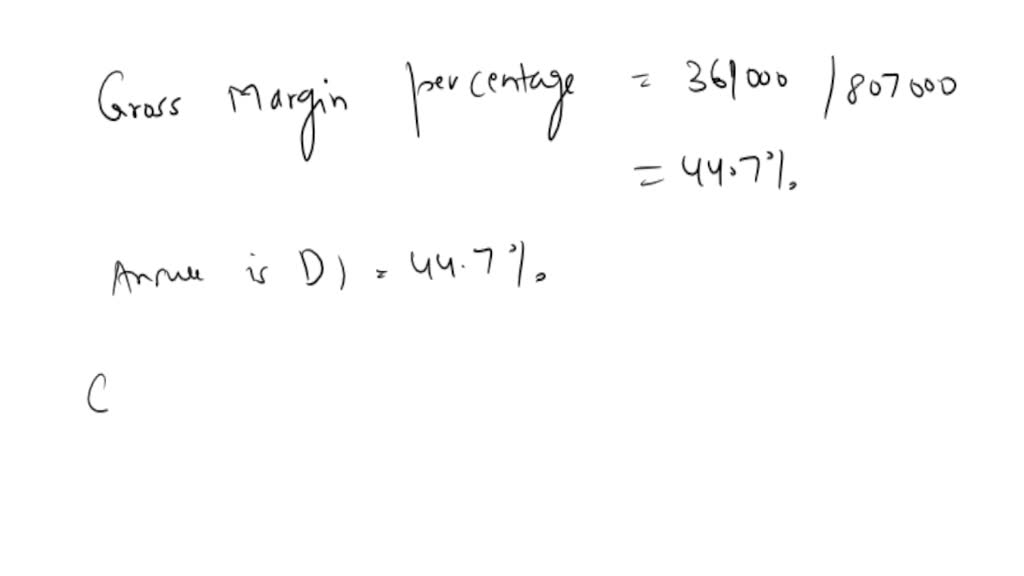 Gross Margin percentage = 361000 / 807000
= 44.7%.
Answer is D) = 44.7%.
C